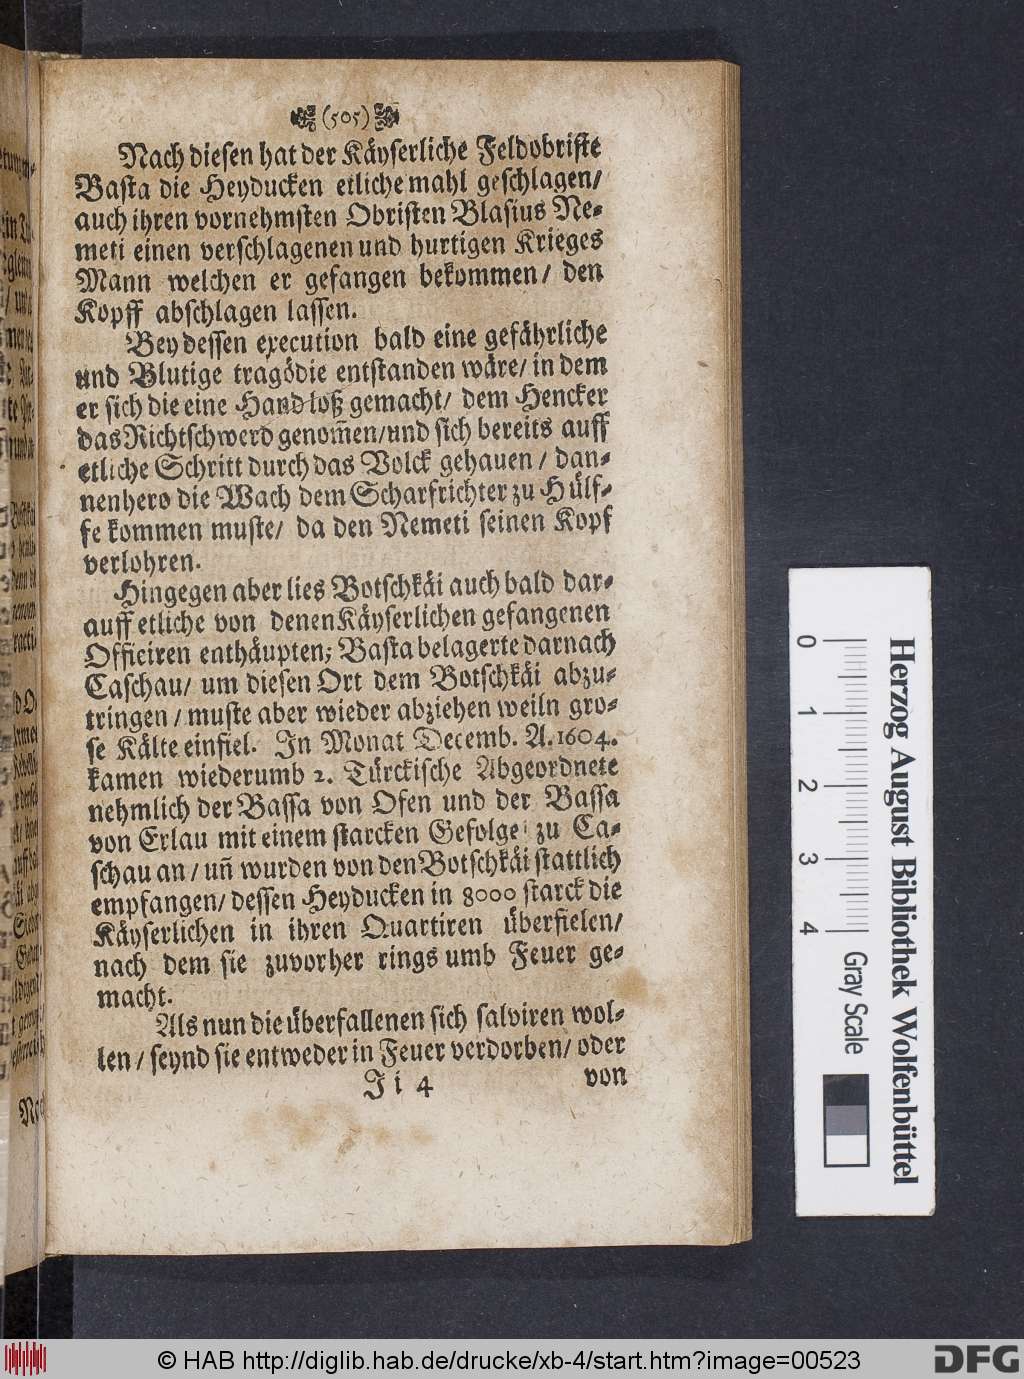 (505)
Nach diesen hat der Käyserliche Feldobriste
Basta die Heyducken etliche mahl geschlagen/
auch ihren vornehmsten Obristen Blasius Ne-
meti einen verschlagenen und hurtigen Krieges
Mann welchen er gefangen bekommen/ den
Kopff abschlagen lassen.
Bey dessen execution bald eine gefährliche
und Blutige tragödie entstanden wäre/ in dem
er sich die eine Hand loß gemacht/ dem Hencker
das Richtschwerd genom̃en/und sich bereits auff
etliche Schritt durch das Volck gehauen/ dan-
nenhero die Wach dem Scharfrichter zu Hülf-
fe kommen muste/ da den Nemeti seinen Kopf
verlohren.
Hingegen aber lies Botschkäi auch bald dar-
auff etliche von denen Käyserlichen gefangenen
Officiren enthäupten; Basta belagerte darnach
Caschau/ um diesen Ort dem Botschkäi abzu-
tringen/ muste aber wieder abziehen weiln gro-
se Kälte einfiel. In Monat Decemb. A. 1604.
kamen wiederumb 2. Türckische Abgeordnete
nehmlich der Bassa von Ofen und der Bassa
von Erlau mit einem starcken Gefolge zu Ca-
schau an/ uñ wurden von den Botschkäi stattlich
empfangen/ dessen Heyducken in 8000 starck die
Käyserlichen in ihren Quartiren überfielen/
nach dem sie zuvorher rings umb Feuer ge-
macht.
Als nun die überfallenen sich salviren wol-
len/ seynd sie entweder in Feuer verdorben/ oder
Ji 4 von
0 1 2 3 4
Herzog August Bibliothek Wolfenbüttel
Gray Scale
© HAB http://diglib.hab.de/drucke/xb-4/start.htm?image=00523
DFG